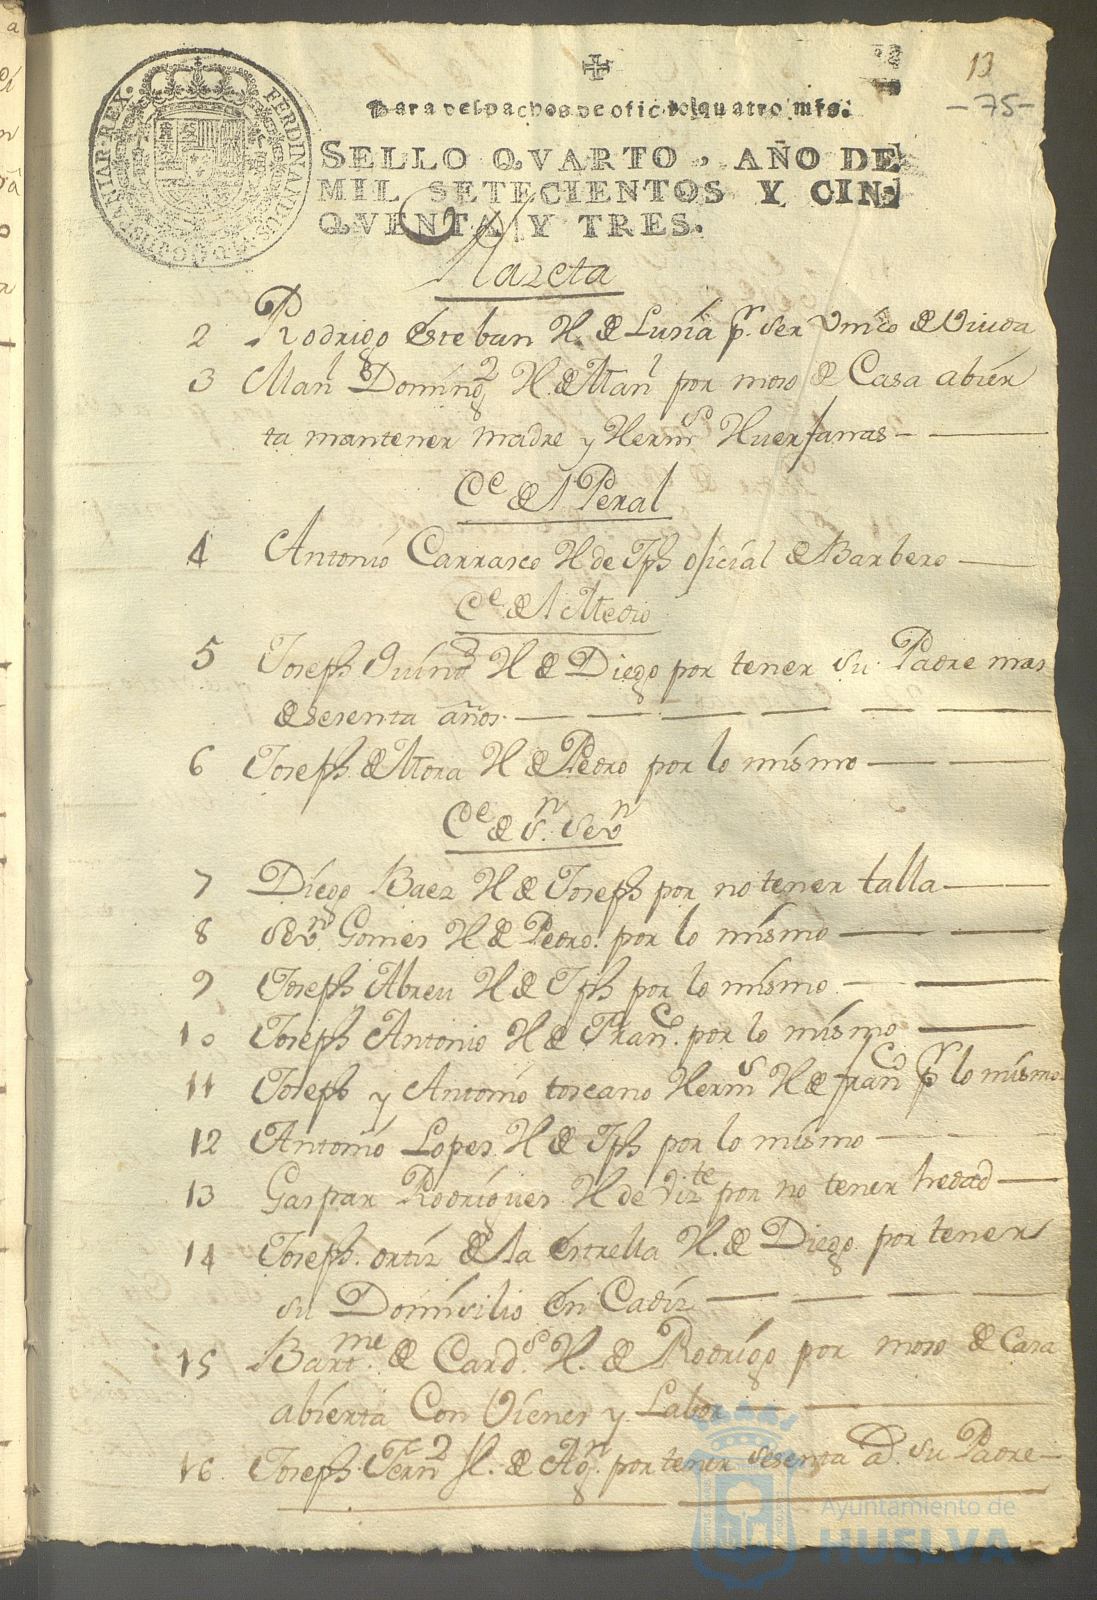 13
-75-
Para despachos de oficio quatro mrs.
SELLO QVARTO, AÑO DE
MIL SETECIENTOS Y CIN-
QVENTA Y TRES.
FERDINANDUS HISPANIAR. REX.
2 Rodrigo Esteban H. de Lucia pr. ser Unico de Viuda
3 Manl Domingz H. de Manl por moso de Casa abier
ta mantener madre y Hermos Huerfanas
Ce del Peral
4 Antonio Carrasco H de Jph oficial de Barbero
Ce del Medio
5 Joseph H de Diego por tener su Padre mas
de sesenta años
6 Joseph de Mora H de Pedro por lo mismo
Ce de Sn Sebn
7 Diego Baez H de Joseph por no tener talla
8 Sebn Gomes H de Pedro por lo mismo
9 Joseph Abreu H de Jph por lo mismo
10 Joseph Antonio H de Franco. por lo mismo
11 Joseph y Antonio toscano Hermos H de franco pr lo mismo
12 Antonio Lopes H de Jph por lo mismo
13 Gaspar Rodrigues H de Vizte por no tener hedad
14 Joseph ortiz de la estrella H. de Diego por tener
su Domisilio en Cadiz
15 Barme. de Cardso H. de Rodrigo por moso de Casa
abierta Con Vienes y Labor
16 Joseph Fernz H. de Agn. por tener sesenta a. su Padre
Ayuntamiento de
HUELVA